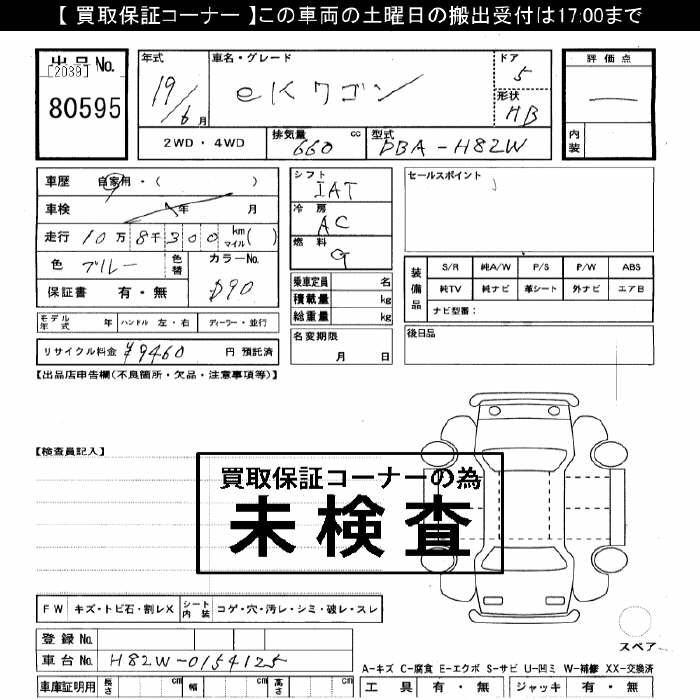 【 買取保証コーナー 】この車両の土曜日の搬出受付は17:00まで
出品No.
[2039]
80595
年式
19/6月
車名・グレード
eKワゴン
ドア
5
形状
HB
2WD・4WD
排気量
660
cc
型式
DBA-H82W
評価点
内装
車歴 自家用・( )
車検 年 月
走行 10万8千300 km マイル( )
色 ブルー
色替
カラーNo.
D90
保証書 有・無
モデル年式 年 ハンドル 左・右 ディーラー・並行
リサイクル料金 ¥9460 円 預託済
シフト
IAT
冷房
AC
燃料
G
乗車定員 名
積載量 kg
総重量 kg
名変期限
月 日
セールスポイント
装備品
S/R 純A/W P/S P/W ABS
純TV 純ナビ 革シート 外ナビ エアB
ナビ型番:
後日品
【出品店申告欄(不良箇所・欠品・注意事項等)】
【検査員記入】
買取保証コーナーの為
未検査
FW キズ・トビ石・割レX シート内装 コゲ・穴・汚レ・シミ・破レ・スレ
登録No.
車台No. H82W-0154125
車庫証明用 長さ cm 幅 cm 高さ cm
スペア
A-キズ C-腐食 E-エクボ S-サビ U-凹ミ W-補修 XX-交換済
工具 有・無 ジャッキ 有・無